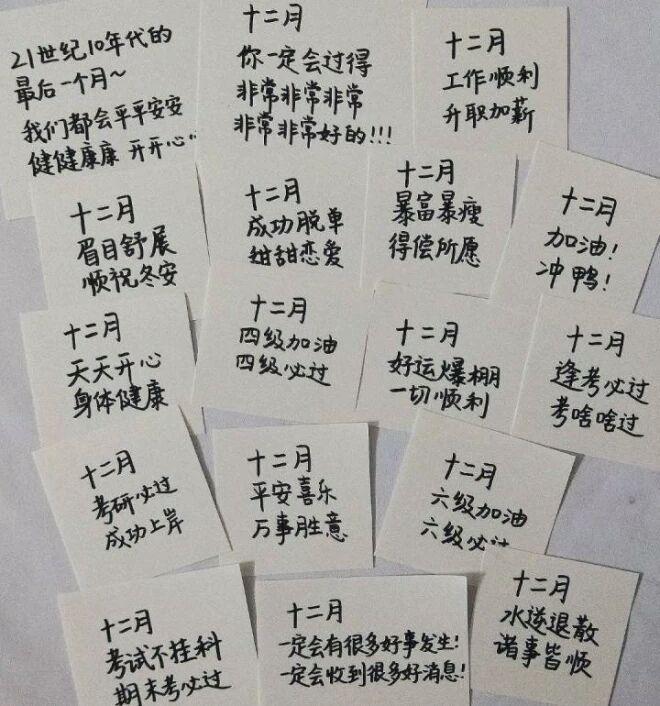 21世纪10年代的
最后一个月~
我们都会平平安安
健健康康 开开心心
十二月
你一定会过得
非常非常非常
非常非常好的!!!
十二月
工作顺利
升职加薪
十二月
眉目舒展
顺祝冬安
十二月
成功脱单
甜甜恋爱
十二月
暴富暴瘦
得偿所愿
十二月
加油!
冲鸭!
十二月
天天开心
身体健康
十二月
四级加油
四级必过
十二月
好运爆棚
一切顺利
十二月
逢考必过
考啥啥过
十二月
考研必过
成功上岸
十二月
平安喜乐
万事胜意
十二月
六级加油
六级必过
十二月
考试不挂科
期末考必过
十二月
一定会有很多好事发生!
一定会收到很多好消息!
十二月
水逆退散
诸事皆顺